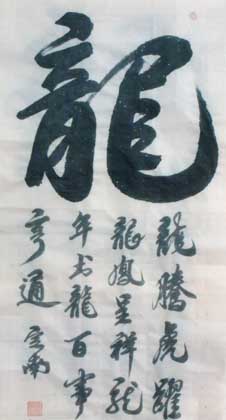 龍
龍騰虎躍
龍鳳呈祥龍
年書龍百事
亨通